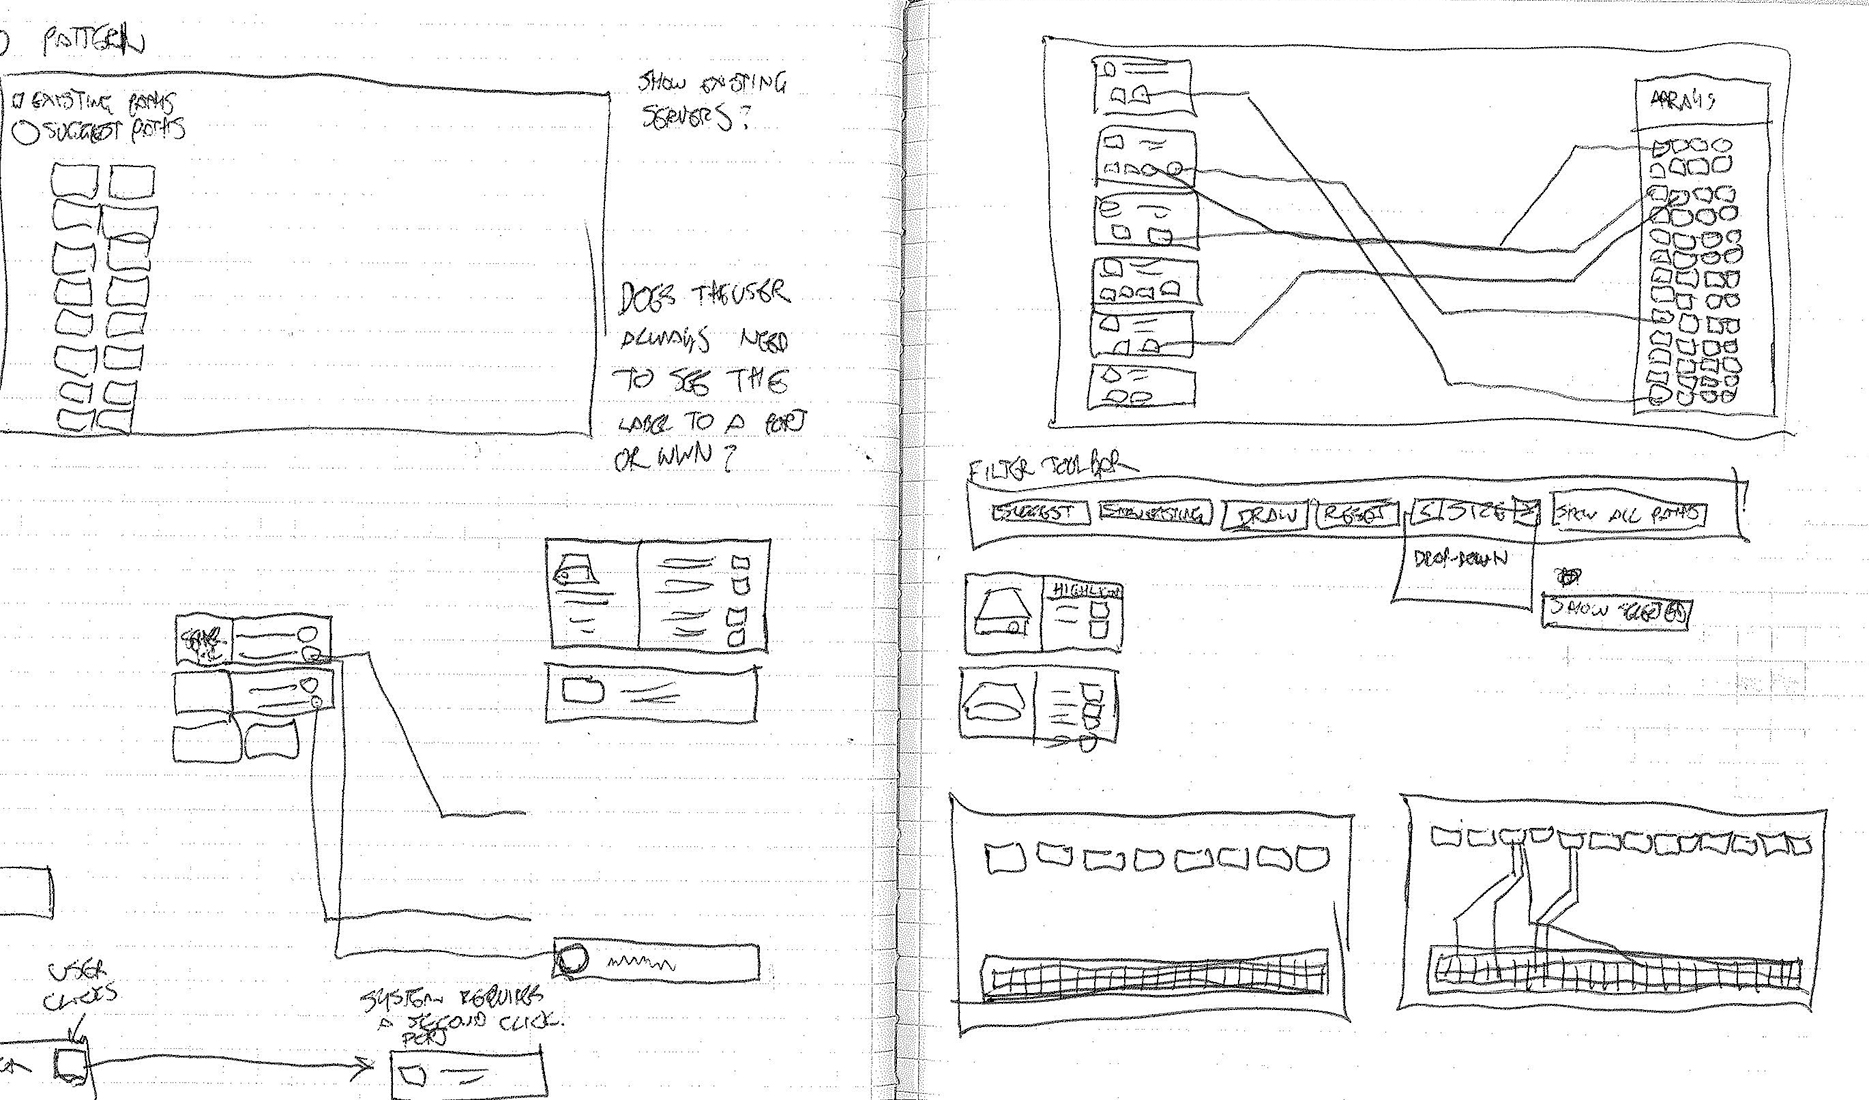 PATTERN
EXISTING PATHS
SUGGEST PATHS
SHOW EXISTING
SERVERS?
DOES THE USER
ALWAYS NEED
TO SEE THE
LABEL TO A PORT
OR WWN?
USER
CLICKS
SYSTEM REQUIRES
A SECOND CLICK.
PORT
ARRAYS
FILTER TOOLBAR
SUGGEST
SHOW EXISTING
DRAW
RESET
SIZE
SHOW ALL PATHS
DROP-DOWN
SHOW SELECTED